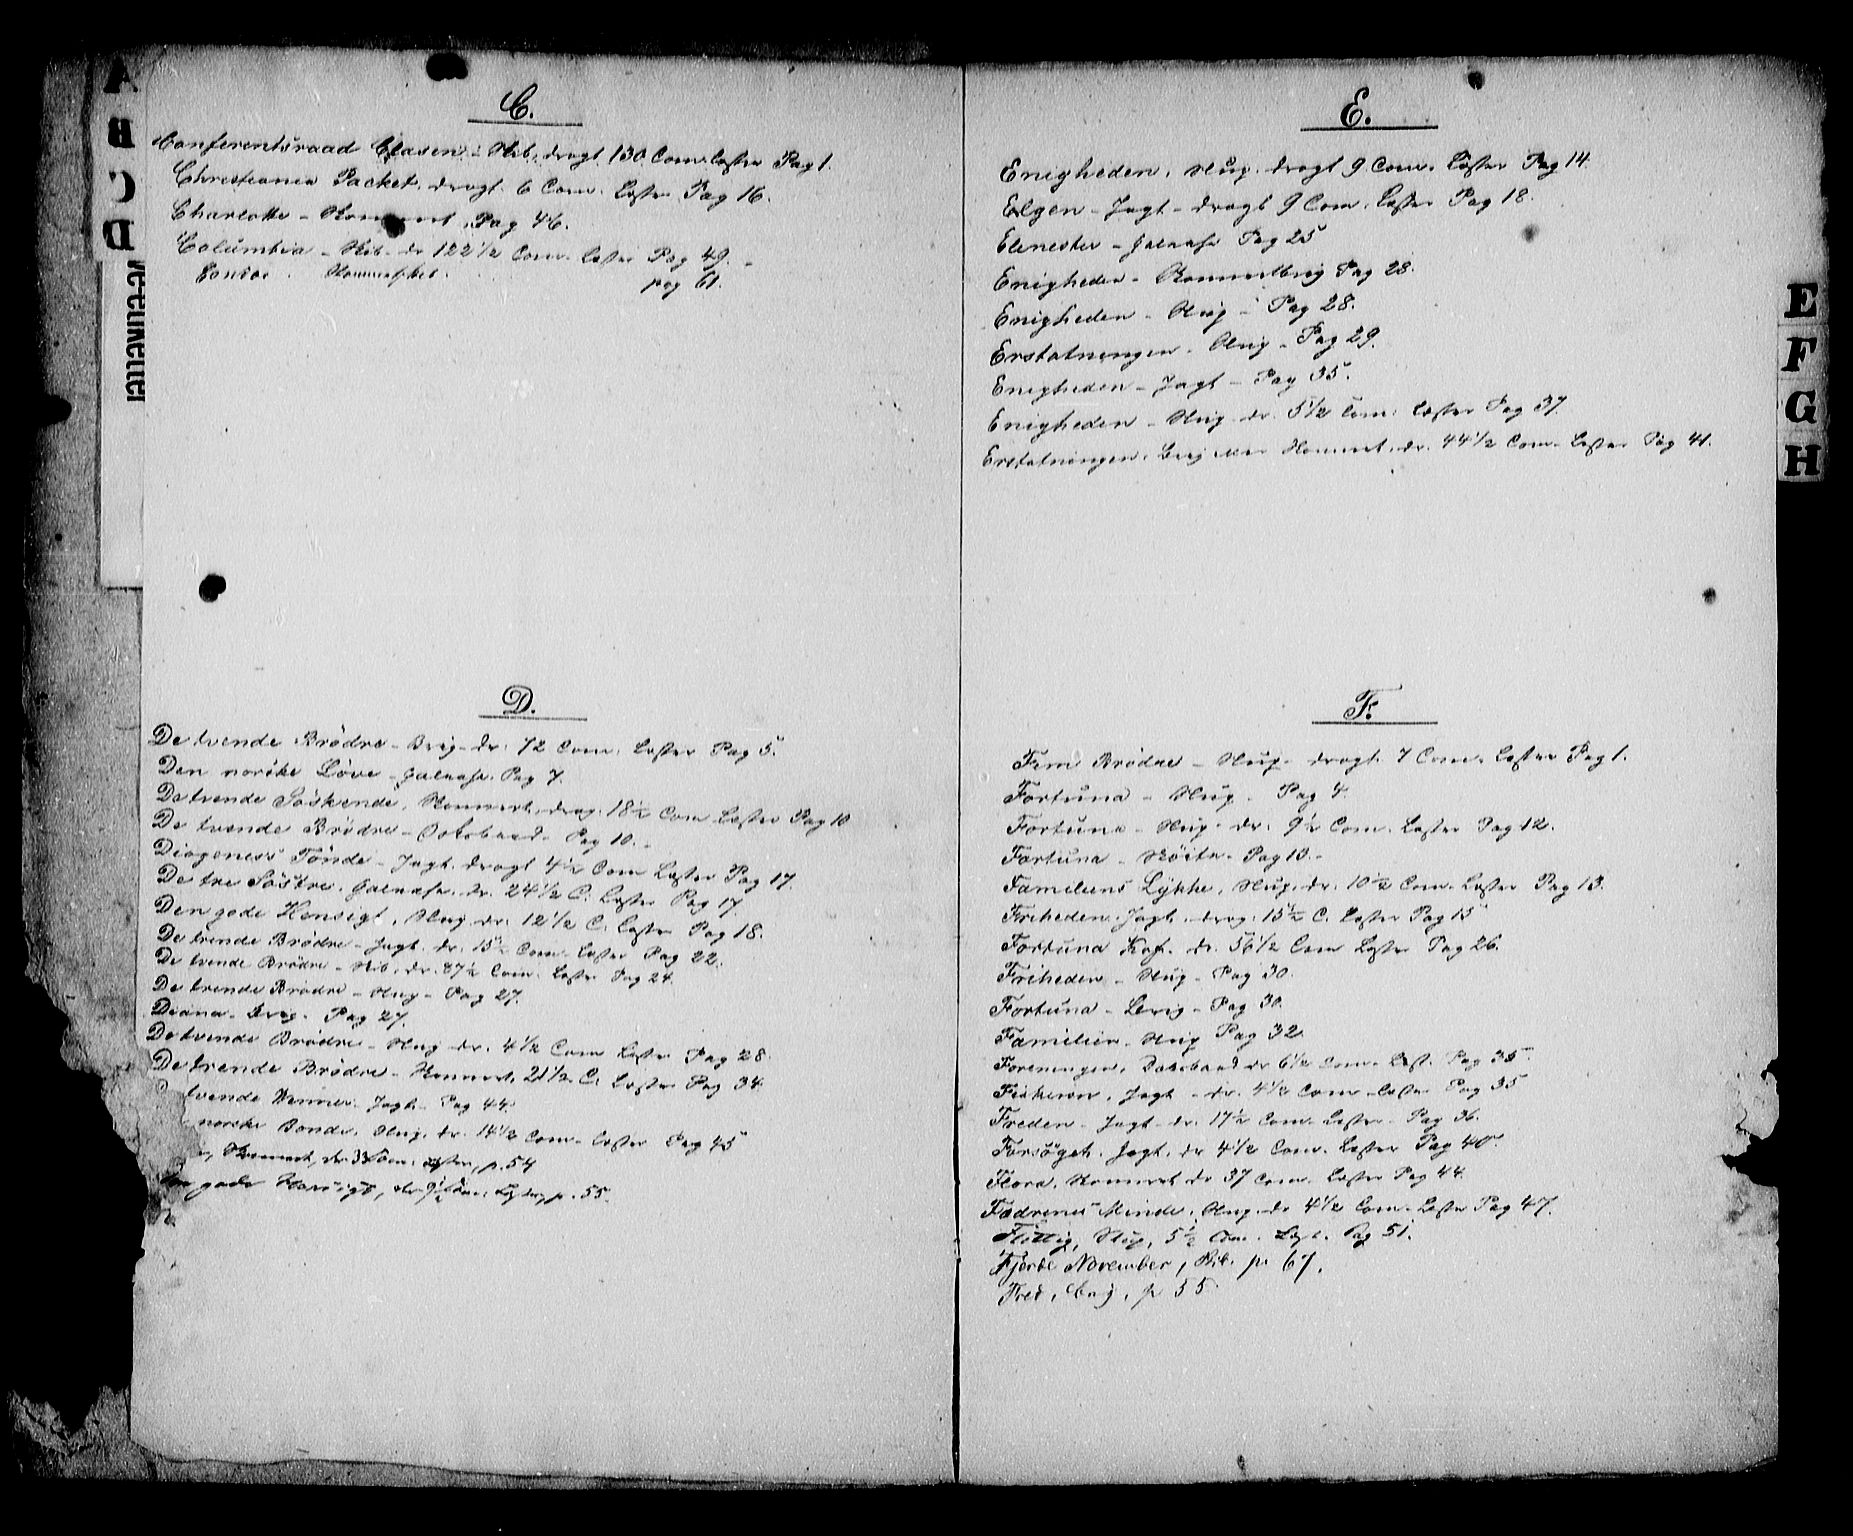 C.
Conferentsraad Clasen, Skib, dragt 130 Com. Læster Pag 1.
Christiania Packet, dragt 6 Com. Læster Pag 16.
Charlotte - Pag 46.
Columbia - Skib - dr 122 1/2 Com. Læster Pag 49. -
pag 61.
D.
De tvende Brödre - Brig - dr. 72 Com. Læster Pag 5.
Den norske Löve - Galease. Pag 7.
De tvende Söskende, Skonnert, drag. 18 1/2 Com Læster Pag 10
De tvende Brödre - Pag 10. -
Diogeness Tönde - Jagt. dragt 4 1/2 Com Læster Pag 17.
De tre Söstre. Galease. dr. 24 1/2 C. Læster Pag 17.
Den gode Hensigt, Slup dr. 12 1/2 C. Læster Pag 18.
De trende Brödre - Jagt. dr. 15 1/2 Com. Læster Pag 22.
De tvende Brödre - Skib. dr. 87 1/2 Com. Læster Pag 24.
De trende Brödre - Slup - Pag 27.
Diana - Brig. Pag 27.
De tvende Brödre - Slup dr. 4 1/2 Com Læster Pag 28.
De trende Brödre - Skonnert. 21 1/2 C. Læster Pag 34.
tvende Venner - Jagt - Pag 44.
norske Bonde. Slup. dr. 14 1/2 Com. Læster Pag 45
Skonnert, dr. 33 Com. Læster, p. 54
gode Hensigt, dr. 9 1/2 Com. Læster, p. 55.
E.
Enigheden. Slup. dragt 9 Com. Læster Pag 14.
Elgen - Jagt - dragt 9 Com. Læster Pag 18.
Elenester - Galease Pag 25
Enigheden - Skonnertbrig Pag 28.
Enigheden - Slup - Pag 28.
Erstatningen - Slup - Pag 29.
Enigheden - Jagt - Pag 35.
Enigheden - Slup dr. 5 1/2 Com. Læster Pag 37
Erstatningen. Skonnert. dr. 44 1/2 Com. Læster Pag 41.
F.
Fem Brödre - Slup - dragt. 7 Com. Læster Pag 1.
Fortuna - Slup - Pag 4.
Fortuna - Slup - dr. 9 1/2 Com. Læster Pag 12.
Fortuna - Pag 13. -
Familiens Lykke, Slup. dr. 10 1/2 Com. Læster Pag 13.
Friheden. Jagt. drag. 15 1/2 C. Læster Pag 15
Fortuna Kof. dr. 56 1/2 Com Læster Pag 26.
Friheden - Slup - Pag 30.
Fortuna - Brig - Pag 30.
Familien - Slup Pag 32.
Foreningen, Dæksbaad dr 6 1/2 Com. Læst. Pag 35
Fiskeren, Jagt - dr. 4 1/2 Com - Læster Pag 35
Freden - Jagt - dr. 17 1/2 Com. Læster - Pag 36.
Forsöget. Jagt. dr. 4 1/2 Com. Læster Pag 40.
Flora. Skonnert dr 37 Com. Læster Pag 44.
Fædrenes Minde. Slup. dr 4 1/2 Com. Læster Pag 47.
Flittig, Slup, 5 1/2 Com. Læst. Pag 51.
Fjerde November, Skib. p. 67.
Fred, Brig, p 55
A
B
C
D
E
F
G
H